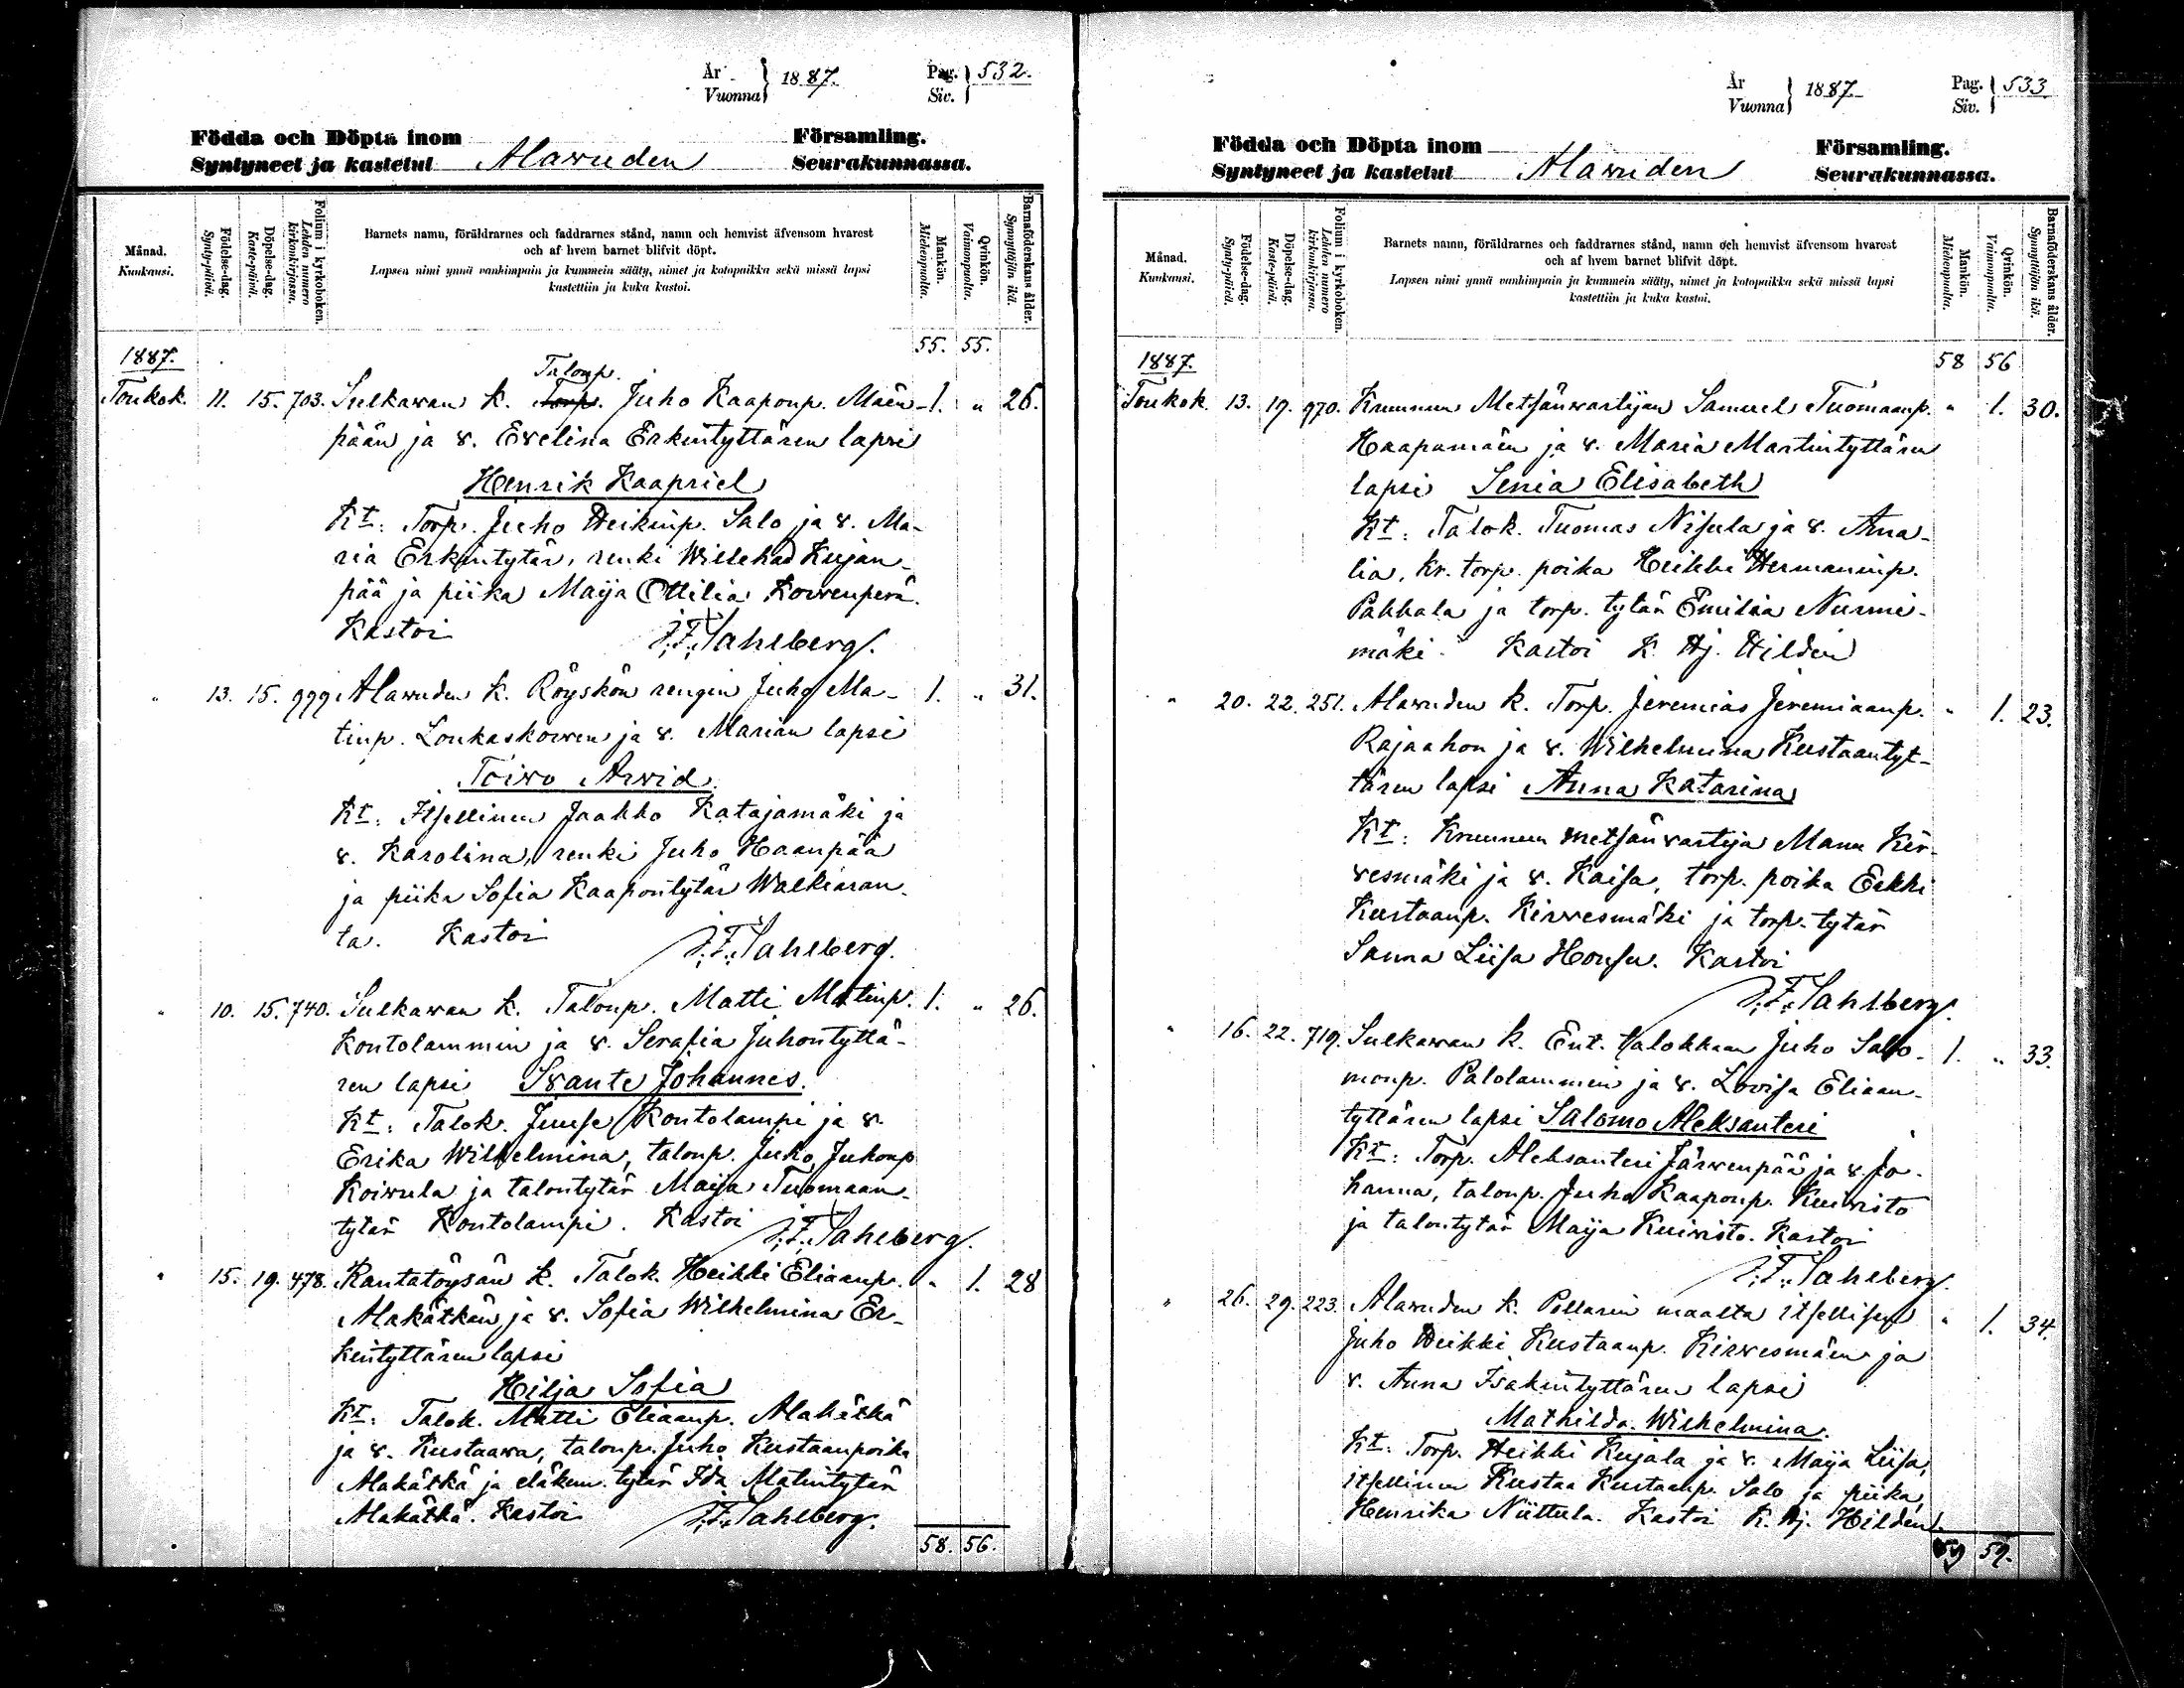 År
Vuonna } 1887. Pag.
Siv. } 532.
Födda och Döpta inom Församling.
Syntyneet ja kastetut Alawuden Seurakunnassa.
Månad.
Kuukausi.
Födelse-dag.
Synty-päivä.
Döpelse-dag.
Kaste-päivä.
Folium i kyrkoboken.
Lehden numero
kirkonkirjassa.
Barnets namn, föräldrarnes och faddrarnes stånd, namn och hemvist äfvensom hvarest
och af hvem barnet blifvit döpt.
Lapsen nimi ynnä vanhimpain ja kummein sääty, nimet ja kotopaikka sekä missä lapsi
kastettiin ja kuka kastoi.
Mankön.
Miehenpuolta.
Qvinkön.
Vaimonpuolta.
Barnaföderskans ålder.
Synnyttäjän ikä.
1887. 55. 55.
Talonp.
Toukok. 11. 15. 703. Sulkawan k. Torp. Juho Kaaponp. Mäen- 1. " 26.
pään ja v. Evelina Erkintyttären lapsi
Henrik Kaapriel
Kt: Torp. Juho Heikinp. Salo ja v. Ma-
ria Erkintytär, renki Willehad Kujan-
pää ja piika Maija Ottilia Korvenperä.
Kastoi J. F. Sahlberg.
" 13. 15. 999 Alawuden k. Röyskön rengin Juho Ma- 1. " 31.
tinp. Loukaskorven ja v. Marian lapsi
Toivo Arvid.
Kt: Itsellinen Jaakko Katajamäki ja
v. Karolina, renki Juho Haanpää
ja piika Sofia Kaapontytär Walkiaran-
ta. Kastoi J. F. Sahlberg.
" 10. 15. 740. Sulkawan k. Talonp. Matti Matinp. 1. " 26.
Kontolammin ja v. Serafia Juhontyttä-
ren lapsi Svante Johannes.
Kt: Talok. Juuse Kontolampi ja v.
Erika Wilhelmina, talonp. Juho Juhonp
Koivula ja talontytär Maija Tuomaan-
tytär Kontolampi. Kastoi J. F. Sahlberg.
" 15. 19. 478. Rantatöysän k. Talok. Heikki Eliaanp. " 1. 28
Alakätkän ja v. Sofia Wilhelmina Er-
kintyttären lapsi
Hilja Sofia
Kt: Talok. Matti Eliaanp. Alakätkä
ja v. Kustaava, talonp. Juho Kustaanpoika
Alakätkä ja eläkem. tytär Ida Matintytär
Alakätkä. Kastoi J. F. Sahlberg.
58. 56.
År
Vuonna } 1887. Pag.
Siv. } 533
Födda och Döpta inom Församling.
Syntyneet ja kastetut Alawuden Seurakunnassa.
Månad.
Kuukausi.
Födelse-dag.
Synty-päivä.
Döpelse-dag.
Kaste-päivä.
Folium i kyrkoboken.
Lehden numero
kirkonkirjassa.
Barnets namn, föräldrarnes och faddrarnes stånd, namn och hemvist äfvensom hvarest
och af hvem barnet blifvit döpt.
Lapsen nimi ynnä vanhimpain ja kummein sääty, nimet ja kotopaikka sekä missä lapsi
kastettiin ja kuka kastoi.
Mankön.
Miehenpuolta.
Qvinkön.
Vaimonpuolta.
Barnaföderskans ålder.
Synnyttäjän ikä.
1887. 58 56
Toukok. 13. 19. 970. Kruunun Metsänvartijan Samuel Tuomaanp. " 1. 30.
Haapamäen ja v. Maria Martintyttären
lapsi Senia Elisabeth
Kt: Talok. Tuomas Nisula ja v. Ama-
lia, kr. torp. poika Heikki Hermaninp.
Pakkala ja torp. tytär Emilia Nurmi-
mäki. Kastoi K. Hj. Hildén
" 20. 22. 251. Alawuden k. Torp. Jeremias Jeremiaanp. " 1. 23.
Rajaahon ja v. Wilhelmina Kustaantyt-
tären lapsi Anna Katarina
Kt: Kruunun metsänvartija Manu Kir-
vesmäki ja v. Kaisa, torp. poika Erkki
Kustaanp. Kirvesmäki ja torp. tytär
Sanna Liisa Kastoi
J. F. Sahlberg.
" 16. 22. 719. Sulkawan k. Ent. talokkaan Juho Salo- 1. " 33.
monp. Palolammin ja v. Lovisa Eliaan-
tyttären lapsi Salomo Aleksanteri
Kt: Torp. Aleksanteri Järvenpää ja v. Jo-
hanna, talonp. Juho Kaaponp. Kuivisto
ja talontytär Maija Kuivisto. Kastoi
J. F. Sahlberg.
" 26. 29. 223. Alawuden k. Pollarin maalta itsellisen " 1. 34.
Juho Heikki Kustaanp. Kirvesmäen ja
v. Anna Isakintyttären lapsi
Mathilda Wilhelmina.
Kt: Torp. Heikki Kujala ja v. Maija Liisa,
itsellinen Kustaa Kustaanp. Salo ja piika
Henrika Niittula. Kastoi K. Hj. Hildén.
59 59.